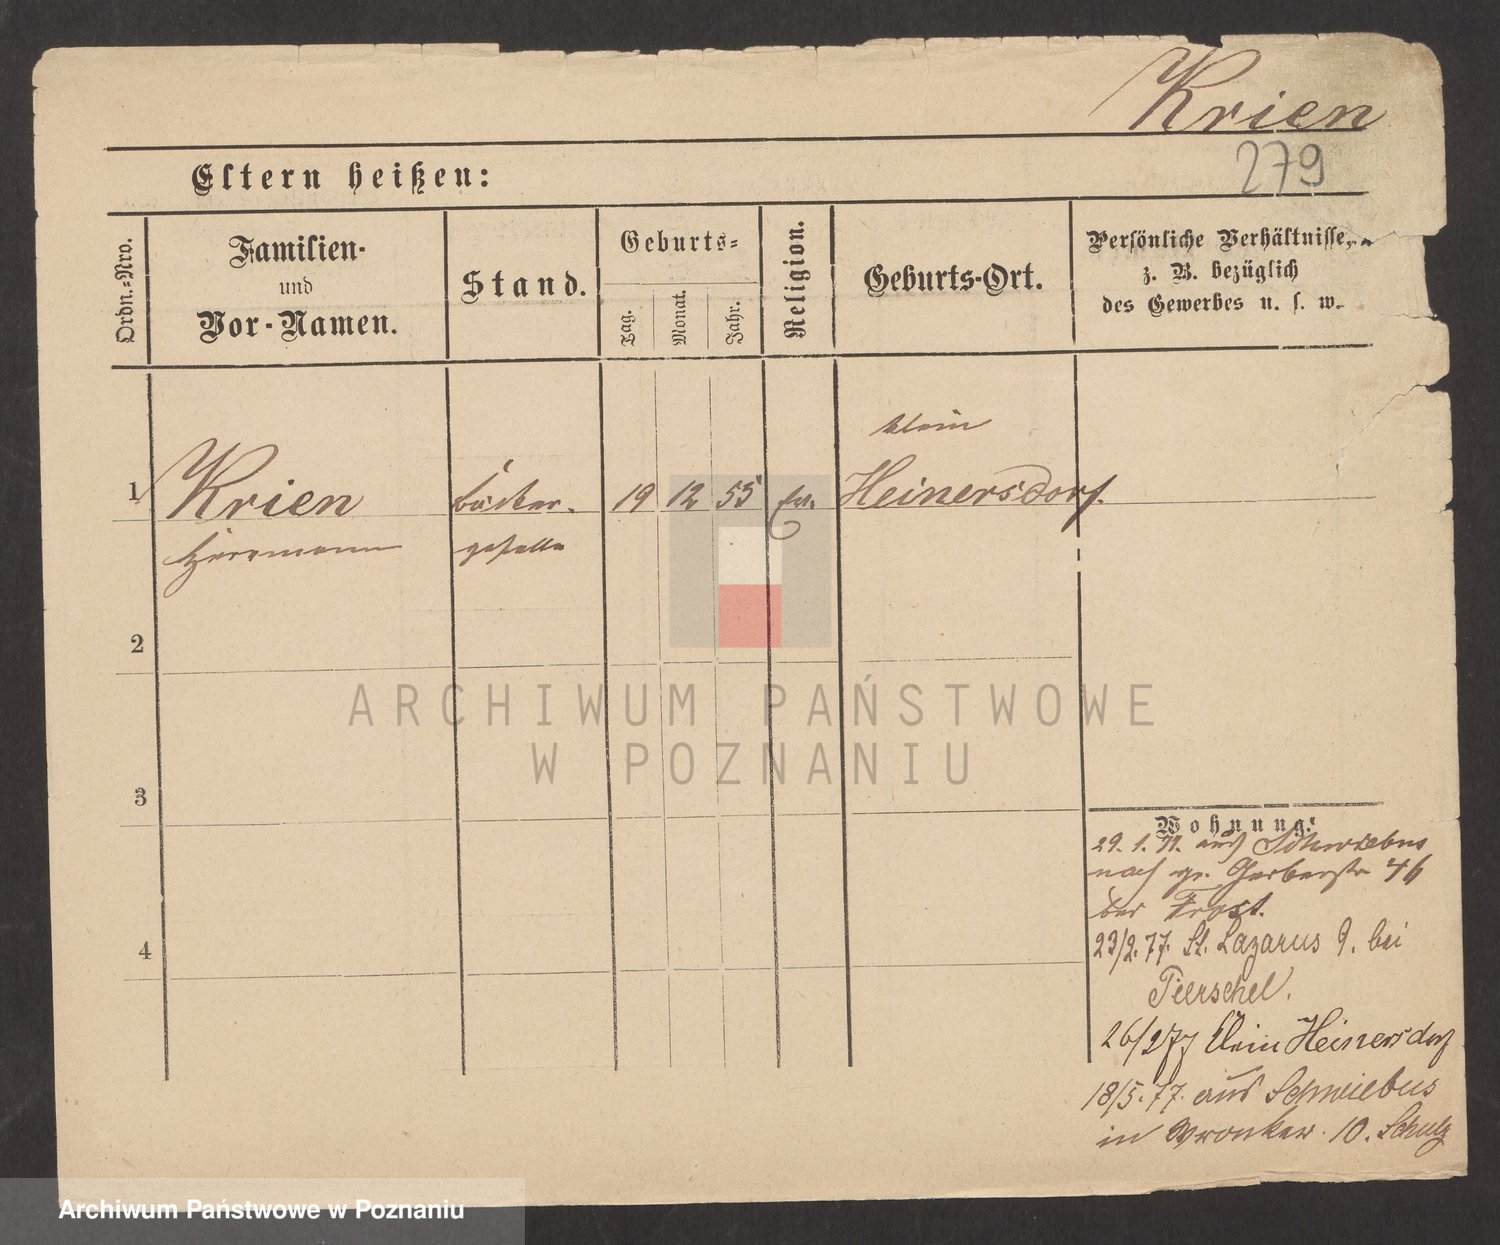 Krien
279
Eltern heißen:
Ordn.-Nro.
Familien-
und
Vor-Namen.
Stand.
Geburts-
Tag.
Monat.
Jahr.
Religion.
Geburts-Ort.
Persönliche Verhältnisse,
z. B. bezüglich
des Gewerbes u. s. w.
klein
1 Krien Bäcker- 19 12 55 ev. Heinersdorf.
Herrmann geselle
2
3
4
Wohnung:
29. 1. 77. aus Schwiebus
nach gr. Gerberstr 46
bei Frost.
23/2. 77. St. Lazarus 9. bei
Peerschel.
26/2 77 Klein Heinersdorf
18/5. 77. aus Schwiebus
in Wronker. 10. Schulz
ARCHIWUM PAŃSTWOWE
W POZNANIU
Archiwum Państwowe w Poznaniu